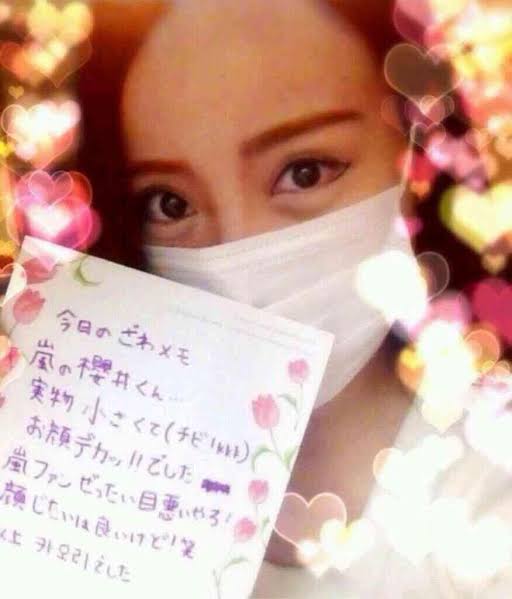 今日のざわメモ
嵐の櫻井くん…
実物小さくて(チビ!kkk)
お顔デカッ!!でした
嵐ファンぜったい目悪いやろ!
顔じたいは良いけど!笑
以上 カオリえした